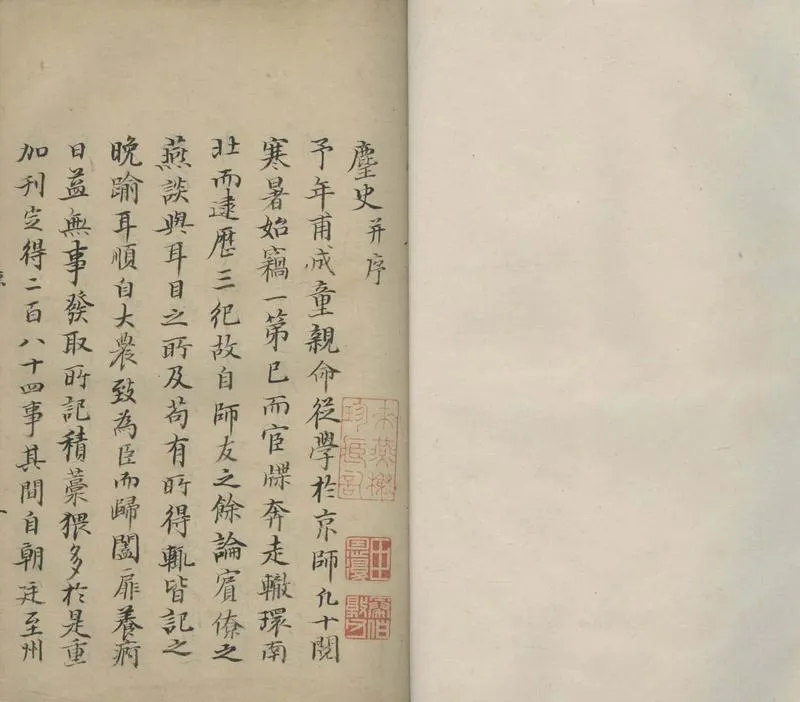 麈史并序
予年甫成童親命從學於京師凡十閱
寒暑始竊一第已而宦牒奔走轍環南
北而逮歷三紀故自師友之餘論賓僚之
燕談與耳目之所及苟有所得輒皆記之
晚踰耳順自大農致為臣而歸闔扉養痾
日益無事發取所記積藁猥多於是重
加刊定得二百八十四事其間自朝廷至州